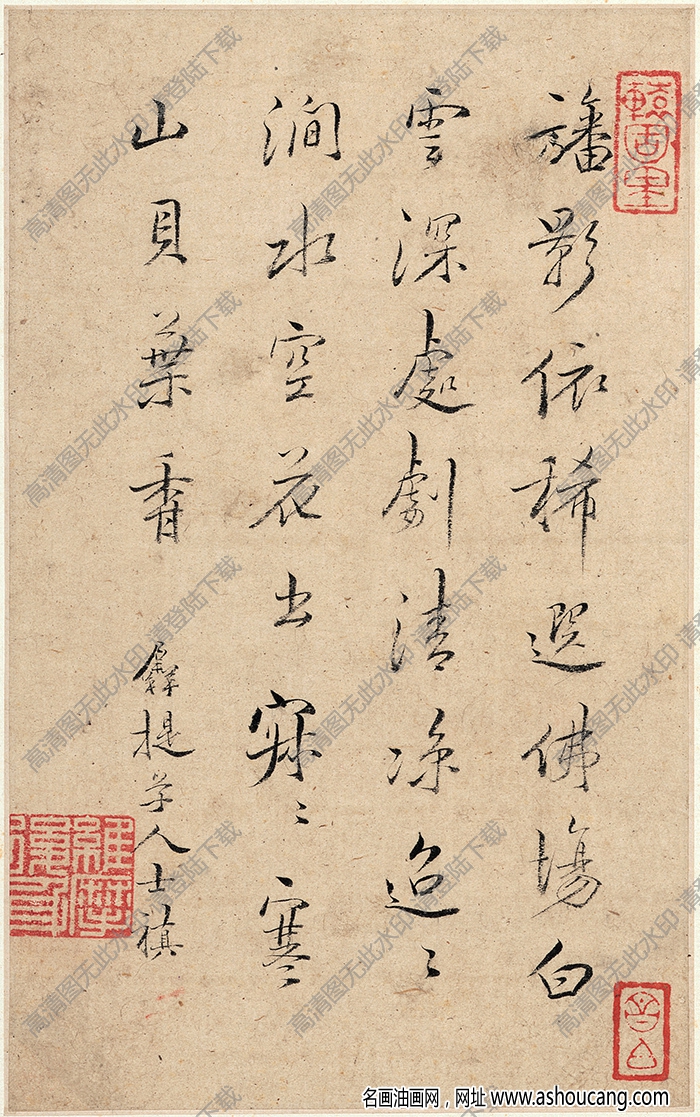 旛影依稀選佛場白
雲深處劇清凉迢〻
澗水空花出寂〻寒
山貝葉香
羼提學人士禛
轅固里
高清图无此水印 请登陆下载
名画油画网，网址 www.ashoucang.com